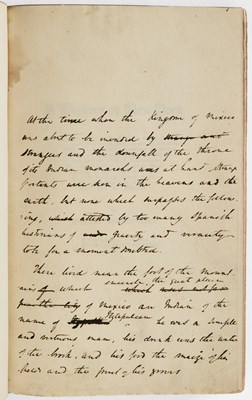 At the time when the Kingdom of Mexico
was about to be invaded by
strangers and the downfall of the throne
of its Indian monarchs was at hand, strange
portents were seen in the heavens and the
earth, but none which surpasses the follow-
ing, attested by too many Spanish
historians of and veracity
to be for a moment doubted.
There lived near the foot of the mount
ains which the great place
of Mexico an Indian of the
name of he was a simple
and virtuous man, his drink was the water
of the brook, and his food the maize of his
field and the fruit of his groves